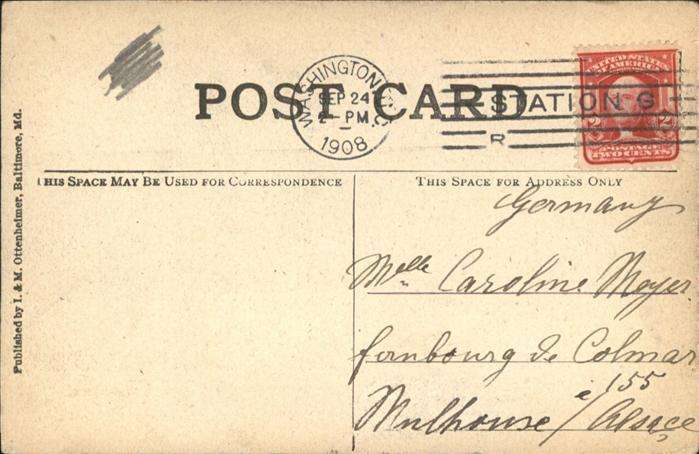 POST CARD
WASHINGTON, D.C.
SEP 24
2 - PM
1908
STATION G
R
UNITED STATES
OF AMERICA
2 2
POSTAGE
TWO CENTS
THIS SPACE MAY BE USED FOR CORRESPONDENCE
THIS SPACE FOR ADDRESS ONLY
Published by I. & M. Ottenheimer, Baltimore, Md.
Germany
Melle Caroline Meyer
fernbourg de Colmar
155
Mulhouse i/Alsace